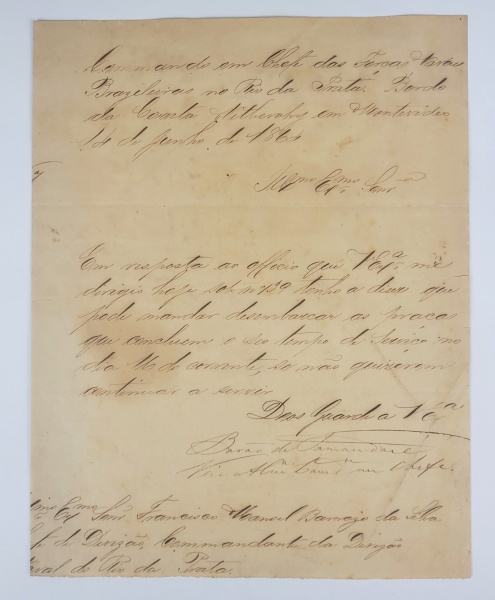 Commando em Chefe das Forças Navaes
Brazileiras no Rio da Prata. Bordo
da Corveta Nitherohy em Montevideo
14 de Junho de 1864
Illmo Exmo Senr
Em resposta ao officio que V Exa me
dirigio hoje sob nº 139 tenho a dizer que
pode mandar desembarcar as praças
que concluem o seo tempo de serviço no
dia 16 do corrente, se não quizerem
continuar a servir
Deos Guarde a V Exa
Barão de Tamandaré
Vice Almte Comte em Chefe
Illmo Exmo Senr Francisco Manoel Barrozo da Silva
de Divizão, Commandante da Divizão
Naval do Rio da Prata.